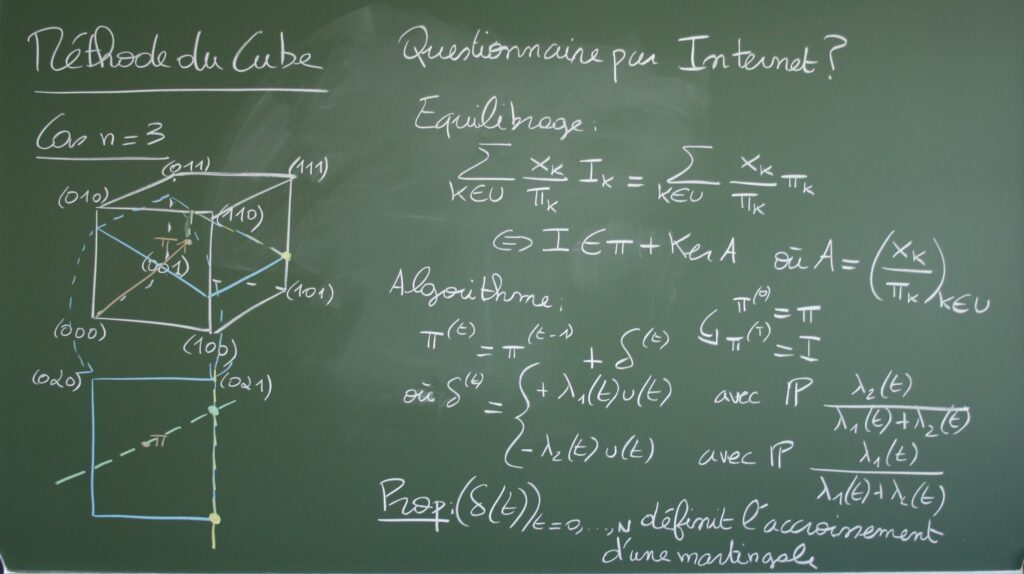 Méthode du Cube
Cas n = 3
(011) (111)
(010) (110)
π
(001)
(101)
(000)
(100)
(020) (021)
π
Questionnaire par Internet ?
Equilibrage :
∑_{k∈U} x_k/π_k I_k = ∑_{k∈U} x_k/π_k π_k
⇔ I ∈ π + Ker A où A = (x_k/π_k)_{k∈U}
Algorithme :
π^(t) = π^(t-1) + δ^(t)
π^(0) = π
π^(T) = I
où δ^(t) = { + λ₁(t) u(t) avec ℙ λ₂(t)/(λ₁(t)+λ₂(t))
- λ₂(t) u(t) avec ℙ λ₁(t)/(λ₁(t)+λ₂(t))
Prop : (δ(t))_{t=0,...,N} définit l'accroissement
d'une martingale